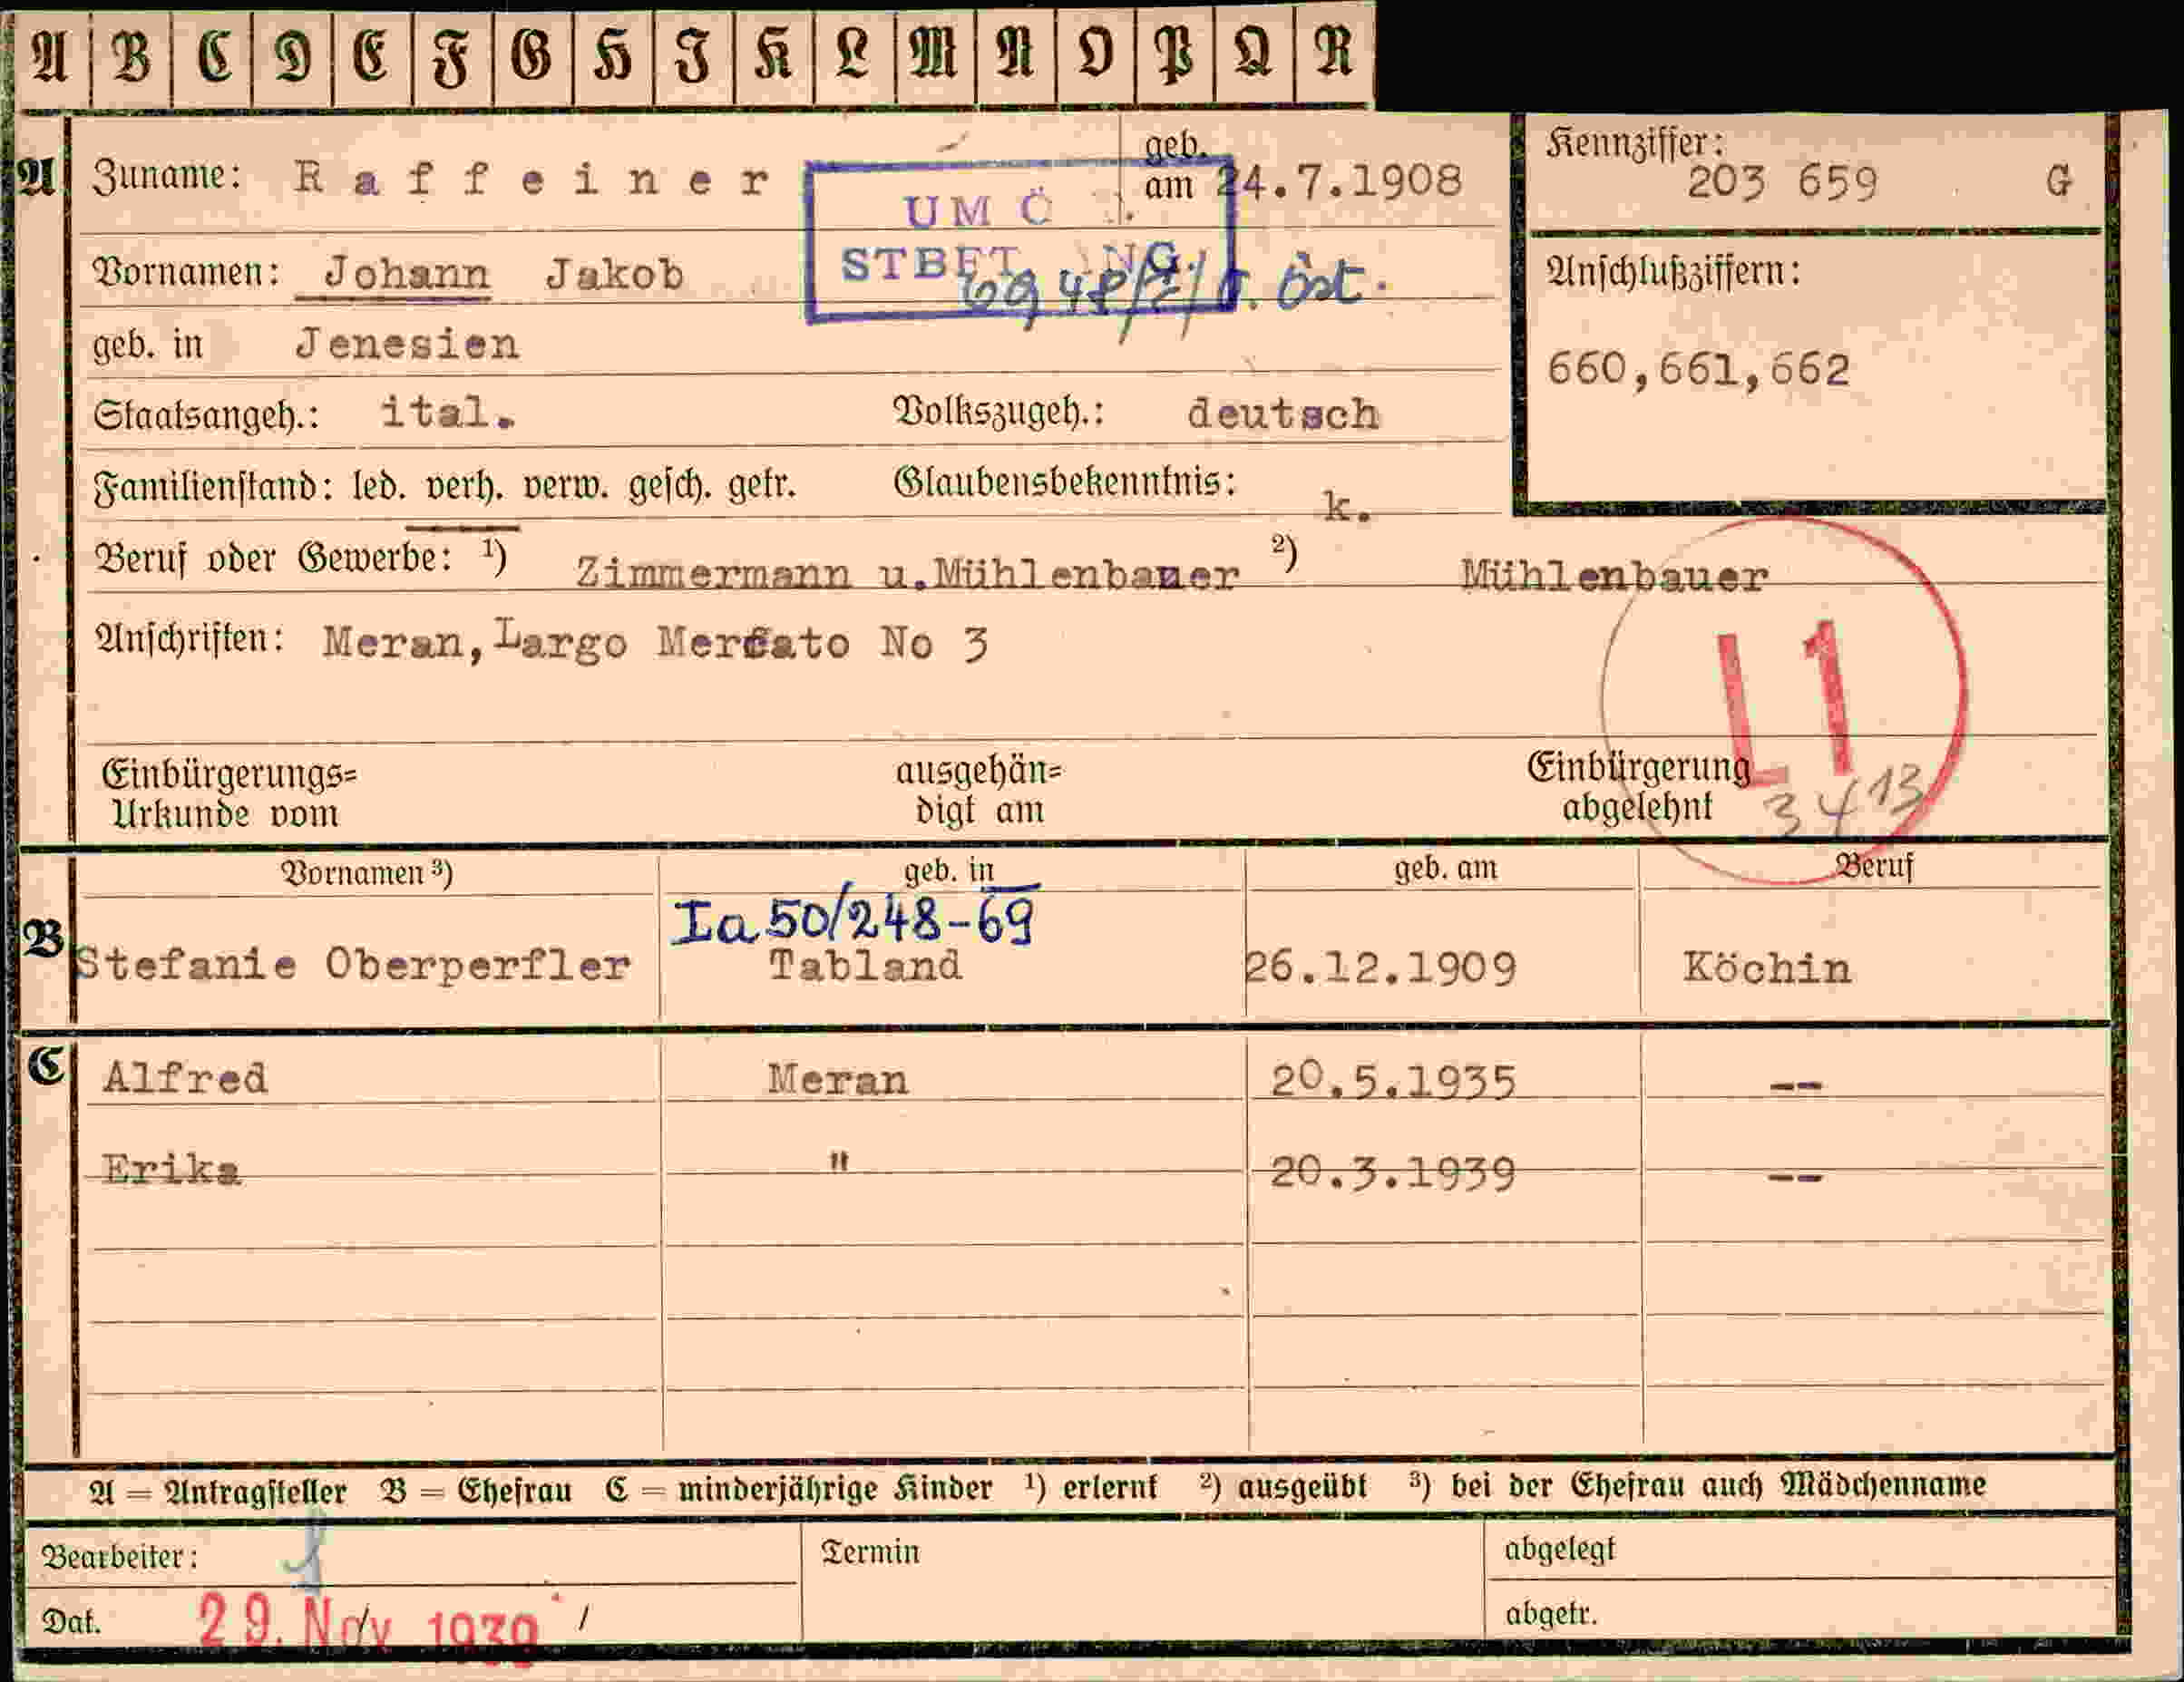 A B C D E F G H I K L M N O P Q R
A Zuname: Raffeiner geb. am 24.7.1908
Kennziffer: 203 659 G
UM Ö
Vornamen: Johann Jakob
Öst.
Anschlußziffern:
geb. in Jenesien
660,661,662
Staatsangeh.: ital. Volkszugeh.: deutsch
Familienstand: led. verh. verw. gesch. getr. Glaubensbekenntnis: k.
Beruf oder Gewerbe: 1) Zimmermann u.Mühlenbauer 2) Mühlenbauer
Anschriften: Meran, Largo Mercato No 3
L1
Einbürgerungs= ausgehän= Einbürgerung
Urkunde vom digt am abgelehnt 3413
Vornamen 3) geb. in geb. am Beruf
Ia 50/248-69
B Stefanie Oberperfler Tabland 26.12.1909 Köchin
C Alfred Meran 20.5.1935 --
Erika " 20.3.1939 --
A = Antragsteller B = Ehefrau C = minderjährige Kinder 1) erlernt 2) ausgeübt 3) bei der Ehefrau auch Mädchenname
Bearbeiter: Termin abgelegt
Dat. 29. Nov 1939 / abgetr.